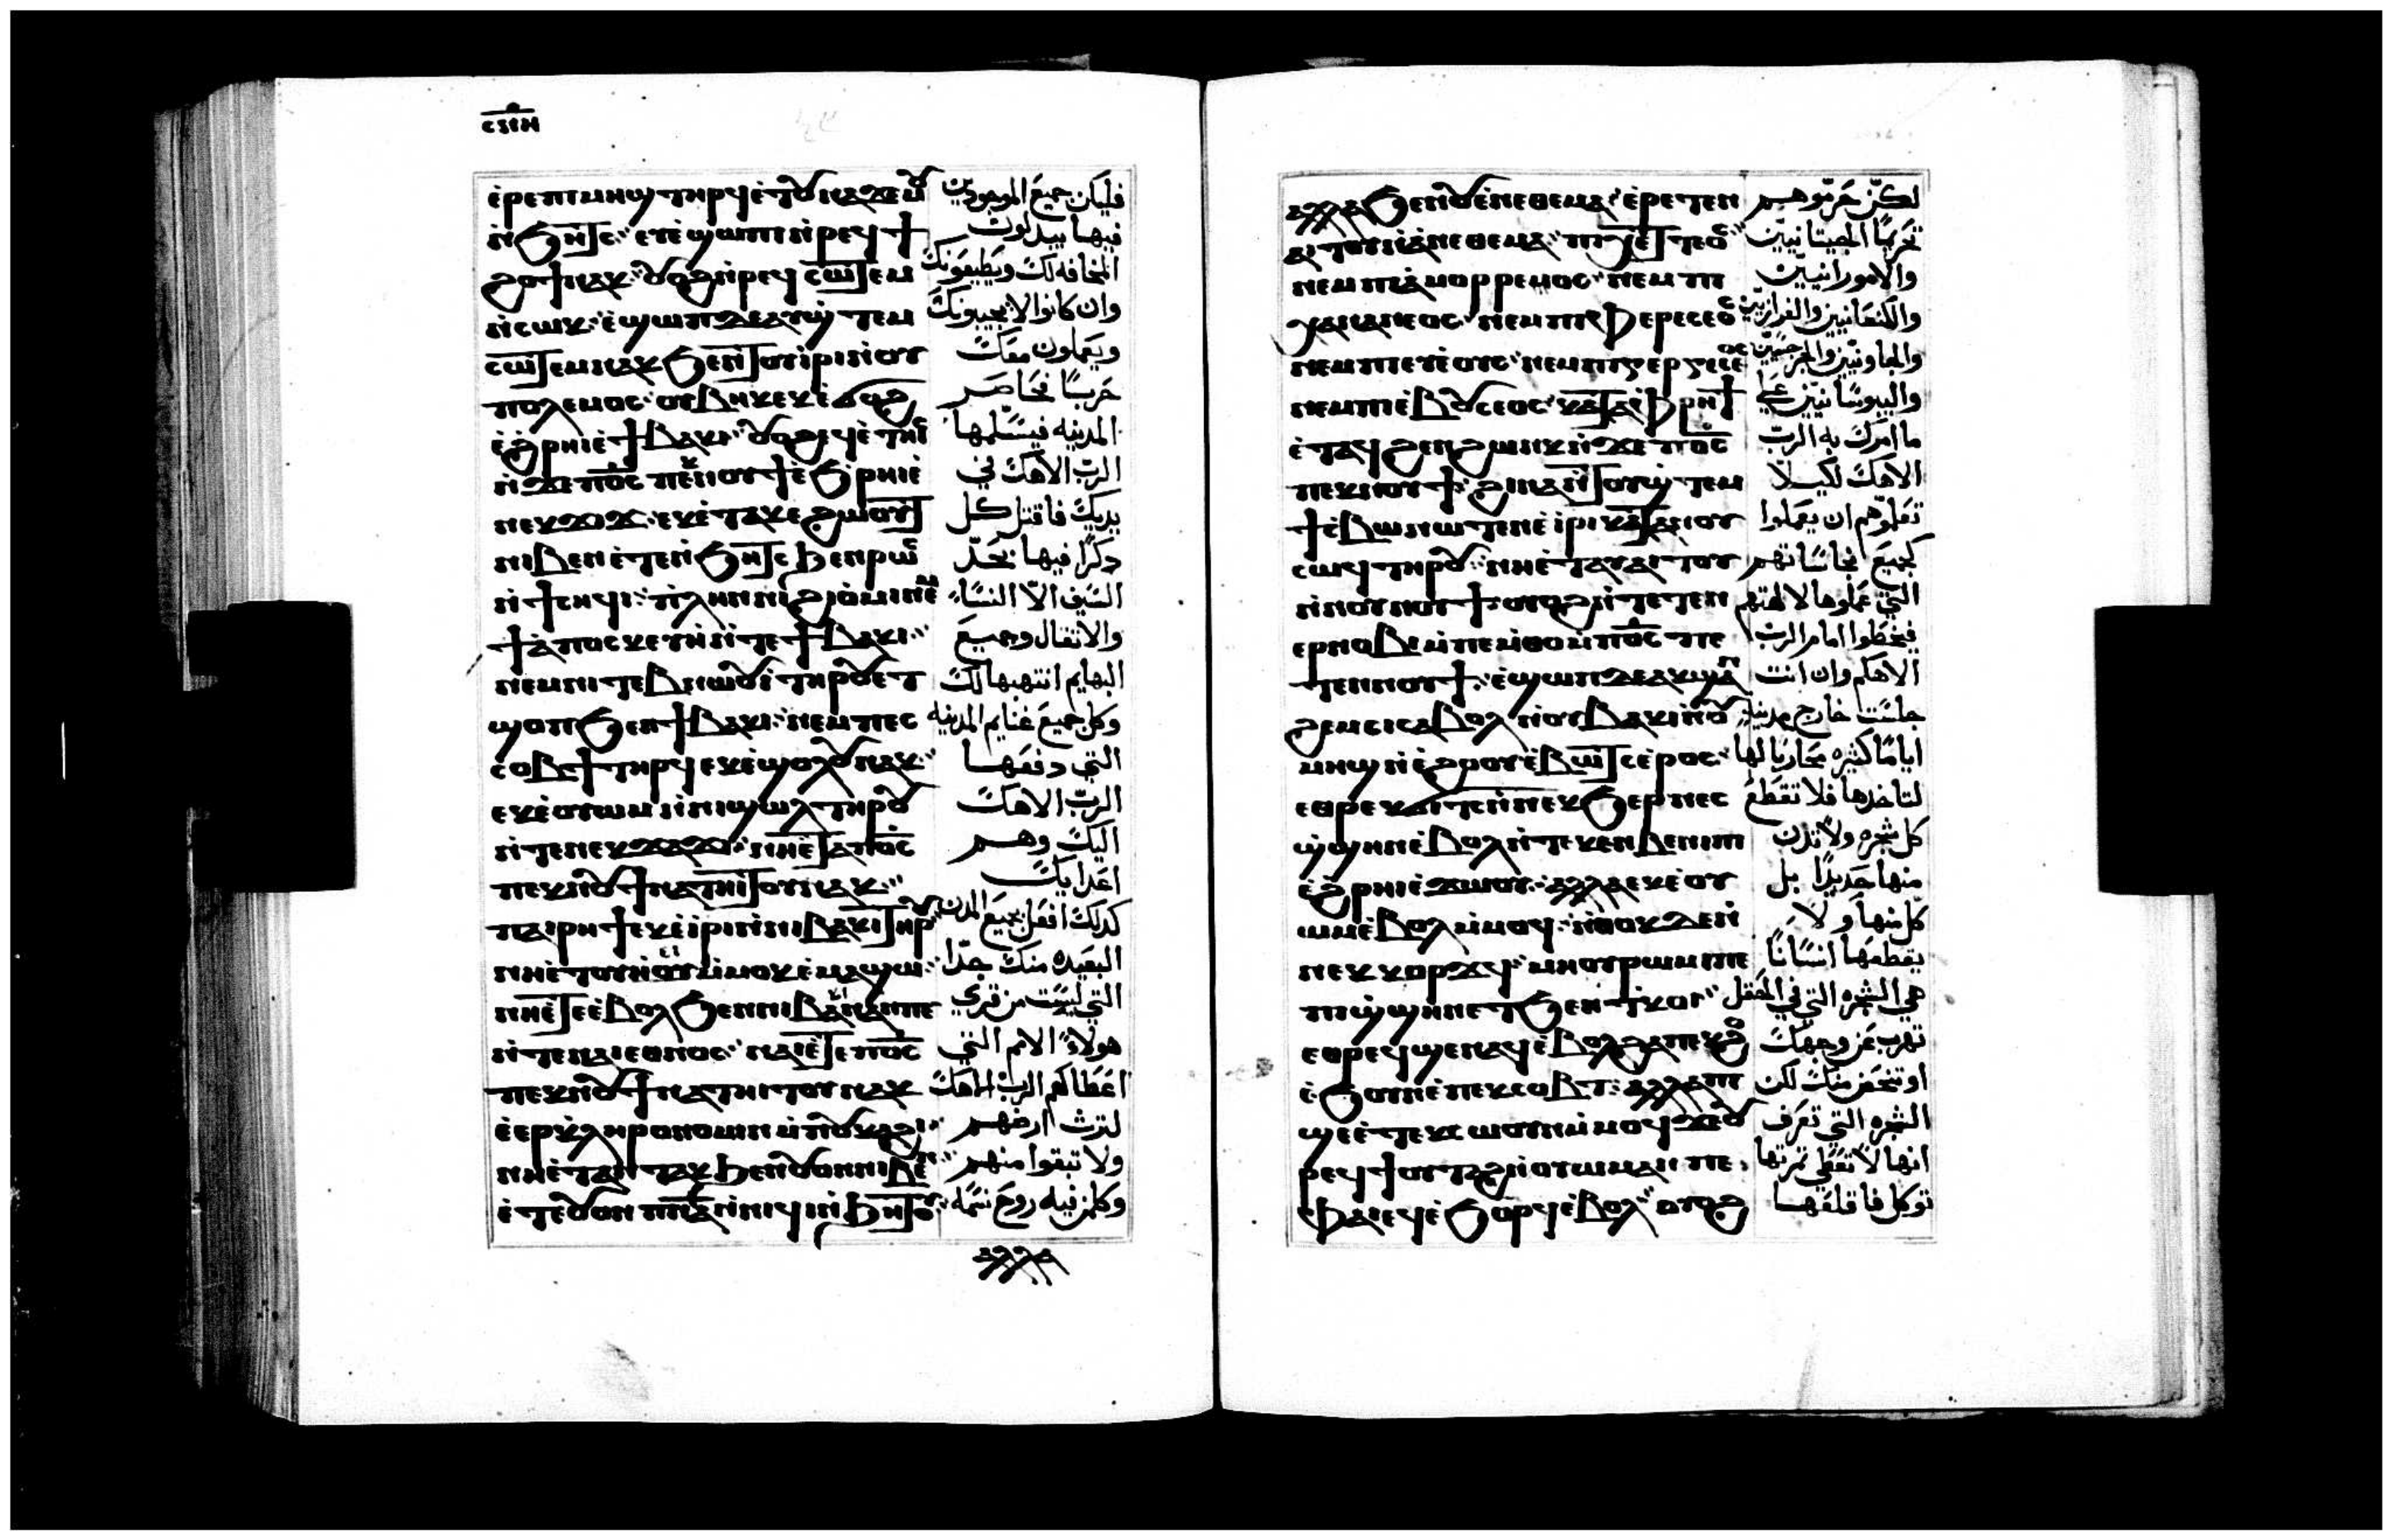 ⲥ̅ⲝ̅ⲓ̅ⲏ̅
ⲉ̀ⲣⲉⲡⲓⲙⲏϣ ⲧⲏⲣϥ ⲉ̀ⲧⲟⲩⲛⲁϫⲉⲙⲟⲩ
ⲛ̀ϧⲏⲧⲥ ⲉⲩⲉ̀ϣⲱⲡⲓ ⲛ̀ⲣⲉϥϯ
ϩⲟϯ ⲛⲁⲕ ⲟⲩⲟϩ ⲛ̀ⲣⲉϥⲥⲱⲧⲉⲙ
ⲛ̀ⲥⲱⲕ ⲉ̀ϣⲱⲡ ⲇⲉ ⲁⲩϣⲧⲉⲙ
ⲥⲱⲧⲉⲙ ⲛⲁⲕ ϧⲉⲛ ⲛ̀ⲧⲟⲩⲓⲣⲓ ⲛ̀ⲟⲩ
ⲡⲟⲗⲉⲙⲟⲥ ⲟⲩⲃⲏⲕ ⲉⲕⲉ̀
ⲉ̀ϩⲣⲏⲓ ⲉ̀ϯⲃⲁⲕⲓ ⲟⲩⲟϩ ⲉϥⲉ̀ⲧⲏⲓⲥ
ⲛ̀ϫⲉ ⲡ̅ⲟ̅ⲥ̅ ⲡⲉⲕⲛⲟⲩϯ ⲉ̀ϧⲣⲏⲓ ⲉ̀
ⲛⲉⲕϫⲓϫ ⲉⲕⲉ̀ⲧⲁⲕⲉ ϩⲱⲟⲩⲧ
ⲛⲓⲃⲉⲛ ⲉ̀ⲧⲉⲛ̀ϧⲏⲧⲥ ϧⲉⲛ ⲣⲱⲥ
ⲛ̀ϯⲥⲏϥⲓ ⲡⲗⲏⲛ ⲛⲓϩⲓⲟ̀ⲙⲓ ⲛⲉⲙ
ϯⲁ̀ⲡⲟⲥⲕⲉⲩⲏ̀ ⲛ̀ⲧⲉ ϯⲃⲁⲕⲓ
ⲛⲉⲙ ⲛⲓⲧⲉⲃⲛⲱⲟⲩⲓ̀ ⲧⲏⲣⲟⲩ ⲉⲧ
ϣⲟⲡ ϧⲉⲛ ϯⲃⲁⲕⲓ ⲛⲉⲙ ⲡⲉⲥ
ⲥⲟⲃϯ ⲧⲏⲣϥ ⲉⲕⲉ̀ϣⲟⲗⲟⲩ ⲛⲁⲕ
ⲉⲕⲉ̀ⲟⲩⲱⲙ ⲛ̀ⲛⲓϣⲱⲗ ⲧⲏⲣⲟⲩ
ⲛ̀ⲧⲉ ⲛⲉⲕϫⲁϫⲓ ⲛⲏⲉ̀ⲧⲁ ⲡ̅ⲟ̅ⲥ̅
ⲡⲉⲕⲛⲟⲩϯ ⲛⲁⲧⲏⲓⲧⲟⲩ ⲛⲁⲕ
ⲡⲁⲓⲣⲏϯ ⲉⲕⲉ̀ⲓ̀ⲣⲓ ⲛ̀ⲛⲓⲃⲁⲕⲓ ⲧⲏⲣⲟⲩ
ⲛⲏⲉ̀ⲧⲟⲩⲏ̀ⲟⲩ ⲙ̀ⲙⲟⲕ ⲉ̀ⲙⲁϣⲱ
ⲛⲏⲉ̀ⲧⲉ ⲉ̀ⲃⲟⲗ ϧⲉⲛ ⲛⲓⲃⲁⲕⲓ ⲁⲛ ⲡⲉ
ⲛ̀ⲧⲉ ⲛⲁⲓⲉⲑⲛⲟⲥ ⲛⲁⲓ ⲉ̀ⲧⲉ ⲡ̅ⲟ̅ⲥ̅
ⲡⲉⲕⲛⲟⲩϯ ⲛⲁⲧⲏⲓⲧⲟⲩ ⲛⲁⲕ
ⲉ̀ⲉⲣⲕⲗⲏⲣⲟⲛⲟⲙⲓⲛ ⲙ̀ⲡⲟⲩⲕⲁϩⲓ
ϧⲉⲛ ⲟⲩⲟⲛ ⲛⲓⲃⲉⲛ
ⲉ̀ⲧⲉ ⲟⲩⲟⲛ ⲡⲛⲁ ⲛ̀ⲛⲓϥⲓ ⲛ̀ϧⲏⲧⲟⲩ
فليكن جميع الموجودين
فيها يبدلون
المخافه لك ويطيعونك
وان كانوا لا يجيبونك
ويعملون معك
حربًا فحاصر
المدينه فيسلمها
الرب الاهك في
يديك فاقتل كل
دكرًا فيها بحد
السيف الا النساء
والاتقال وجميع
البهايم انتهبها لك
وكل جميع غنايم المدينه
التي دفعها
الرب الاهك
اليك وهم
اعدايك
كدلك افعل بجميع المدن
البعيده منك جدا
التي ليست من قري
هولاء الامم التي
اعطاكم الرب الاهك
لترث ارضهم
ولا تبقوا منهم
وكلمن فيه روح نسمه
ⲁⲗⲗⲁ
ⲁⲗⲗⲁ ϧⲉⲛ ⲟⲩⲁ̀ⲛⲉⲑⲉⲙⲁ ⲉ̀ⲣⲉⲧⲉⲛ
ⲁⲓⲧⲟⲩ ⲛ̀ⲁ̀ⲛⲉⲑⲉⲙⲁ ⲡⲓⲭⲉⲧⲧⲉⲟⲥ
ⲛⲉⲙ ⲡⲓⲁ̀ⲙⲟⲣⲣⲉⲙⲟⲥ ⲛⲉⲙ ⲡⲓ
ⲭⲁⲛⲁⲛⲉⲟⲥ ⲛⲉⲙ ⲡⲓⲫⲉⲣⲉⲥⲉⲟⲥ
ⲛⲉⲙ ⲡⲓⲉⲩⲉ̀ⲟⲥ ⲛⲉⲙ ⲡⲓⲅⲉⲣⲅⲉⲥⲉⲟⲥ
ⲛⲉⲙ ⲡⲓⲉ̀ⲃⲟⲩⲥⲉⲟⲥ ⲕⲁⲧⲁ ⲫ̀ⲣⲏϯ
ⲉ̀ⲧⲁϥϩⲉⲛϩⲱⲛⲕ ⲛ̀ϫⲉ ⲡ̅ⲟ̅ⲥ̅
ⲡⲉⲕⲛⲟⲩϯ ϩⲓⲛⲁ ⲛ̀ⲧⲟⲩϣⲧⲉⲙ
ϯⲥ̀ⲃⲱ ⲛⲱⲧⲉⲛ ⲉ̀ⲓ̀ⲣⲓ ⲕⲁⲧⲁ ⲛⲟⲩ
ⲥⲱϥ ⲧⲏⲣⲟⲩ ⲛⲏⲉ̀ⲧⲁⲩⲁⲓⲧⲟⲩ
ⲛ̀ⲛⲟⲩⲛⲟⲩϯ ⲟⲩⲟϩ ⲛ̀ⲧⲉⲧⲉⲛ
ⲉⲣⲛⲟⲃⲓ ⲙ̀ⲡⲉⲙⲑⲟ ⲙ̀ⲡ̅ⲟ̅ⲥ̅ ⲡⲉ
ⲧⲉⲛⲛⲟⲩϯ ⲉ̀ϣⲱⲡ ⲇⲉ ⲁⲕϣⲁⲛ
ϩⲉⲙⲥⲓ ⲥⲁⲃⲟⲗ ⲛ̀ⲟⲩⲃⲁⲕⲓ ⲛ̀ⲟⲩ
ⲙⲏϣ ⲛ̀ⲉ̀ϩⲟⲟⲩ ⲉ̀ⲃⲱⲧⲥ ⲉ̀ⲣⲟⲥ
ⲉⲑⲣⲉⲕϭⲓⲧⲥ ⲛ̀ⲛⲉⲕϧⲉⲣ ⲡⲉⲥ
ϣ̀ϣⲏⲛ ⲉ̀ⲃⲟⲗ ⲛ̀ⲧⲉⲕⲉⲛ ⲃⲉⲛⲓⲡⲓ
ⲉ̀ϩⲣⲏⲓ ⲉ̀ϫⲱⲟⲩ ⲁⲗⲗⲁ ⲉⲕⲉ̀ⲟⲩ
ⲱⲙ ⲉ̀ⲃⲟⲗ ⲙ̀ⲙⲟϥ ⲛ̀ⲑⲟⲕ ⲇⲉ ⲛ̀
ⲛⲉⲕⲕⲟⲣϫϥ ⲙⲏ ⲟⲩⲣⲱⲙⲓ ⲡⲉ
ⲡⲓϣ̀ϣⲏⲛ ⲉⲧϧⲉⲛ ⲧ̀ⲕⲟⲓ
ⲉⲑⲣⲉϥϣⲉⲛⲁϥ ⲉ̀ⲃⲟⲗ ϩⲁ ⲡⲉⲕϩⲟ
ⲉ̀ϧⲟⲩⲛ ⲉ̀ⲡⲉⲕⲥⲟⲃⲧ ⲁⲗⲗⲁ ⲡⲓ
ϣⲉ ⲉ̀ⲧⲉⲕⲥⲱⲟⲩⲛ ⲙ̀ⲙⲟϥ ϫⲉ ⲟⲩ
ⲣⲉϥϯⲟⲩⲧⲁϩ ⲛ̀ⲟⲩⲱⲙ ⲁⲛ ⲡⲉ
ⲫⲁⲓ ⲉϥⲉ̀ϧⲟⲣϥ ⲉ̀ⲃⲟⲗ ⲟⲩⲟϩ
لكن حرموهم
تحريمًا الحيتانيين
والامورانيين
والكنعانيين والفرازيين
والحاونيين والجرجسيين
واليبوسانيين علي
ما امرك به الرب
الاهك لكيلا
تعلموهم ان يعملوا
كجميع نجاساتهم
التي عملوها لالهتهم
فيخطوا امام الرب
الاهكم وان انت
جلست خارج مدينه
اياما كثيره محاربا لها
لتاخدها فلا تقطع
كل شجره ولا تدن
منها حديدًا بل
كل منها ولا
يقطعها انسانًا
هي الشجره التي في الحقل
تهرب عن وجهك
او تتحصن منك لكن
الشجره التي تعرف
انها لا تعطي تمرتها
توكل فاقلعها